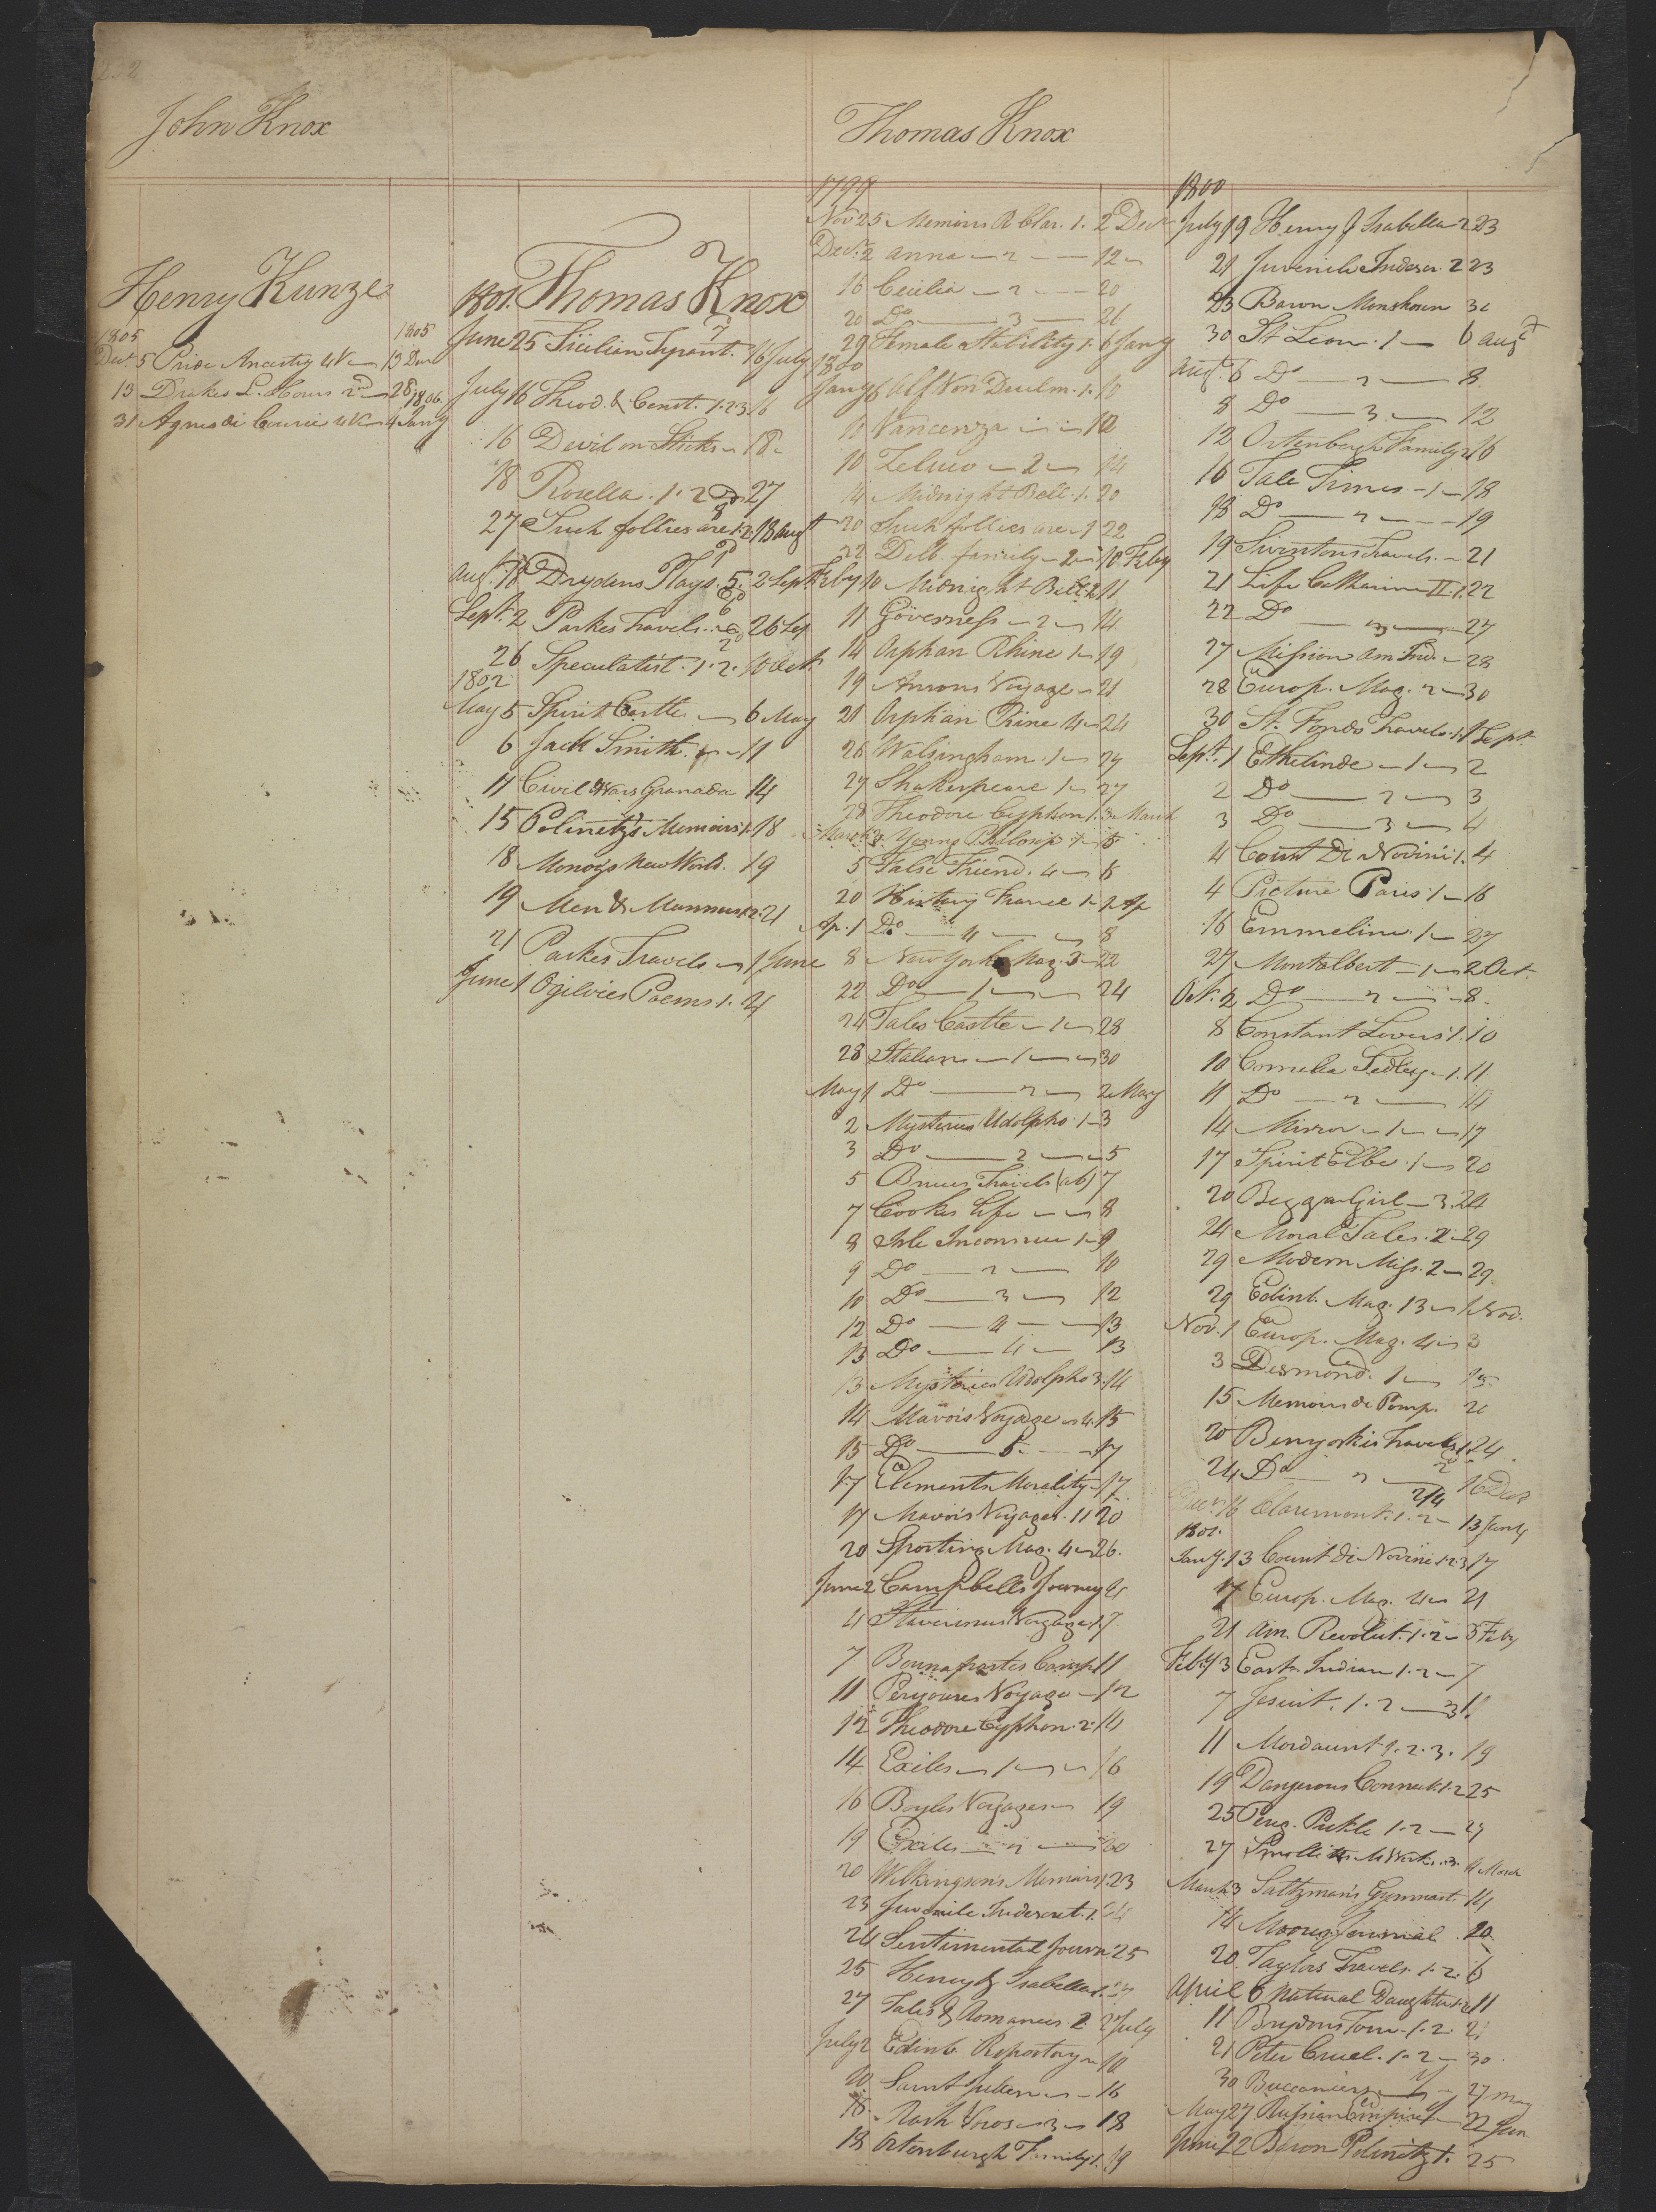 232
John Knox
Henry Kunze
1805 1805
Dec. 5 Pride Ancestry 4 V 13 Dec
13 Drakes L. Hours 2nd 28
1806
31 Agnes di Courci 4 Jany
1801. Thomas Knox
June 25 Sicilian Tyrant. 16 July
July 16 Theod. & Const. 1.2 3 16
16 Devil on Sticks 18
18 Rosella. 1. 2 27
27 Such follies are 1.2 18 augt
Augt. 18 Drydens Plays. 5. 6 2 Sept
Sept. 2 Parkes Travels 26 Sep
26 Speculatist. 1. 2. 10 Oct
1802
May 5 Spirit Castle 6 May
6 Jack Smith 11
11 Civil Wars Granada 14
15 Polinetz's Memoirs 1. 18
18 New World. 19
19 Men & Manners 1.2. 21
21 Parkes Travels 1 June
June 1 Ogilvies Poems. 1. 4
Thomas Knox
1799
Nov 25 Memoirs B Clar. 1. 2 Decr
Decr. 2 Anna 2 12
16 Cecilia 2 20
20 Do 3 21
29 Female Stability 1. 6 Jany
1800
Jany 6 Alf Von Duelm. 1. 10
10 Vancenza 10
10 Zeluco 2 14
14 Midnight Bell. 1. 20
20 Such follies are 1 22
22 Delb. family 2 10 Feby
Feby 10 Midnight Bell 2 11
11 Governess 2 14
14 Orphan Rhine 1 19
19 Ansons Voyage 21
21 Orphan Rine 4 24
26 Walsingham. 1 27
27 Shakerpeare 1 27
28 Theodore Cyphon 1. 3 March
March 3 Young Philosop 1 5
5 False Friend. 4 8
20 History France 1 1 Ap
Ap. 1 Do 4 8
8 New York Mag. 3 22
22 Do 1 24
24 Tales Castle 1 28
28 Italian 1 30
May 1 Do 2 2 May
2 Mysteries Udolpho 1 3
3 Do 2 5
5 Bruces Travels (ab) 7
7 Cookes Life 8
8 Isle Inconnue 1 9
9 Do 2 10
10 Do 3 12
12 Do 4 13
13 Do 4 13
13 Mysteries Udolpho 3. 14
14 Mavors Voyage 4. 15
15 Do 5 17
17 Elements Morality 17
17 Mavors Voyages. 11 20
20 Sporting Mag. 4 26.
June 2 Campbells Journey 4
4 Stavorinus Voyage 1. 7
7 Bounapartes Camp 11
11 Perouses Voyage 12
12 Theodore Cyphon. 2. 14
14 Exiles 1 16
16 Boyles Voyages 19
19 Exiles 2 20
20 Wilkingson's Memoirs 1. 23
23 Juvenile Indescret. 1. 24
24 Sentimental Journ 25
25 Henry & Isabella 1. 27
27 Tales & Romances 2 2 July
July 2 Edinb Repository 10
10 Saint Julien 16
16 Rash Vows 3 18
18 Ortenburgh Family 1. 19
1800
July 19 Henry & Isabella 2 23
21 Juvenile Indescr. 2 23
23 Baron Monshosen 30
30 St Leon. 1 6 augt
Augt. 6 Do 2 8
8 Do 3. 12
12 Ortenburgh Family 2 16
16 Tale Times 1 18
18 Do 2 19
19 Swintons Travels. 21
21 Life Catharine II. 1. 22
22 Do 27
27 Mission Am Ind. 28
28 Europ. Mag. 2 30
30 St. Fonds Travels. 1. 1 Sept.
Sept. 1 Ethelinde 1 2
2 Do 2 3
3 Do 3 4
4 Count Di Novini 1. 4
4 Picture Paris 1 16
16 Emmeline. 1 27
27 Montalbert 1 2 Oct.
Oct. 2 Do 2 8.
8 Constant Lovers 1. 10
10 Cornelia Sedley 1. 11
11 Do 2 14
14 Mirror 1 17
17 Spirit Elbe. 1 20
20 Beggar Girl 3. 24
24 Moral Tales. 2 29
29 Modern Miss. 2 29
29 Edinb. Mag. 13 1 Nov.
Nov. 1 Europ. Mag. 4 3
3 Desmond. 1 15
15 Memoirs de Pomp. 20
20 Benyoskis Travels 1. 24
24 Do 2 16 Decr
Decr. 16 Claremont. 1. 2 13 Jany
1801.
Jany. 13 Count di Novini 1.2.3 17
17 Europ. Mag. 4 21
21 Am. Revolut. 1. 2 3 Feby
Feby 3 East Indian 1. 2 7
7 Jesuit. 1. 2 3 11
11 Mordaunt 1. 2. 3. 19
19 Dangerous Connect. 1. 2 25
25 Pereg. Pickle 1. 2 27
27 Smolletts M Works. 3. 4 March
March 3 Saltzman's Gymnast. 14
14 Moores Journal 20
20 Taylors Travels. 1. 2. 6
April 6 Natural Daughter 1.2 11
11 Brydons Tour. 1. 2. 21
21 Peter Cruel. 1. 2 30
30 Buccaniers 27 May
May 27 Russian Empire 22 Jun
June 22 Baron Polinitz 1. 25